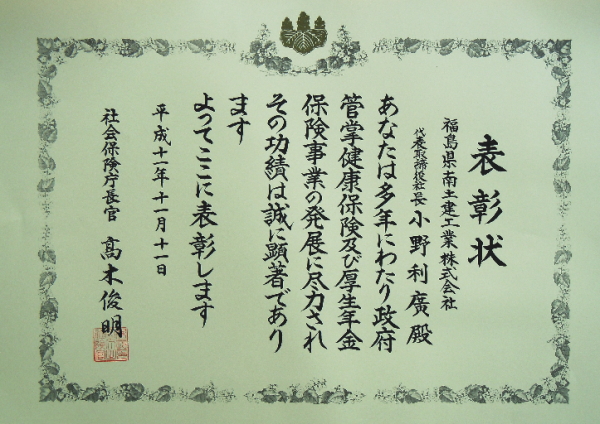 表彰状
福島県南土建工業株式会社
代表取締役社長 小野利廣殿
あなたは多年にわたり政府
管掌健康保険及び厚生年金
保険事業の発展に尽力され
その功績は誠に顕著であり
ます
よってここに表彰します
平成十一年十一月十一日
社会保険庁長官 高木俊明